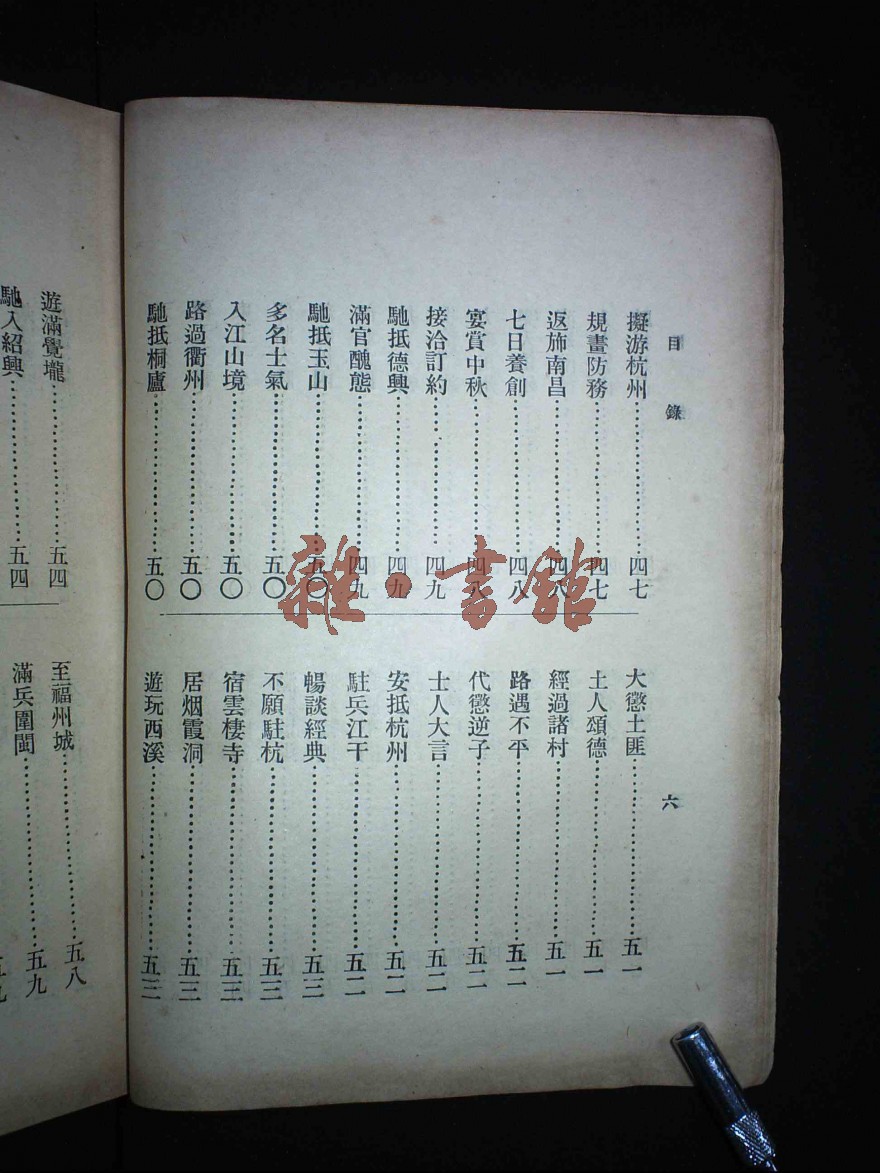 目錄
擬游杭州⋯⋯四七
規畫防務⋯⋯四七
返斾南昌⋯⋯四八
七日養創⋯⋯四八
宴賞中秋⋯⋯四八
接洽訂約⋯⋯四九
馳抵德興⋯⋯四九
滿官醜態⋯⋯四九
馳抵玉山⋯⋯五〇
多名士氣⋯⋯五〇
入江山境⋯⋯五〇
路過衢州⋯⋯五〇
馳抵桐廬⋯⋯五〇
六
大懲土匪⋯⋯五一
土人頌德⋯⋯五一
經過諸村⋯⋯五一
路遇不平⋯⋯五二
代懲逆子⋯⋯五二
士人大言⋯⋯五二
安抵杭州⋯⋯五二
駐兵江干⋯⋯五二
暢談經典⋯⋯五三
不願駐杭⋯⋯五三
宿雲棲寺⋯⋯五三
居烟霞洞⋯⋯五三
遊玩西溪⋯⋯五三
遊滿覺壠⋯⋯五四
馳入紹興⋯⋯五四
至福州城⋯⋯五八
滿兵圍閩⋯⋯五九
雜·書館